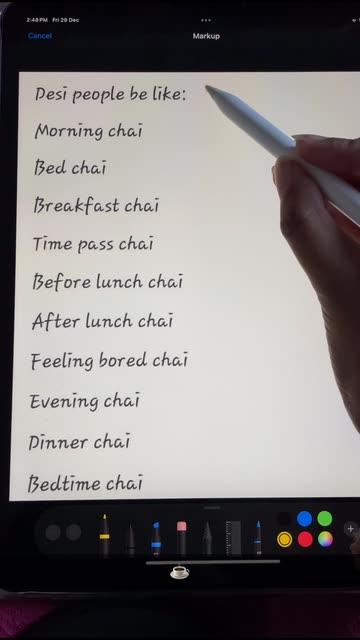 2:48 PM Fri 29 Dec
Cancel
Markup
Desi people be like:
Morning chai
Bed chai
Breakfast chai
Time pass chai
Before lunch chai
After lunch chai
Feeling bored chai
Evening chai
Dinner chai
Bedtime chai